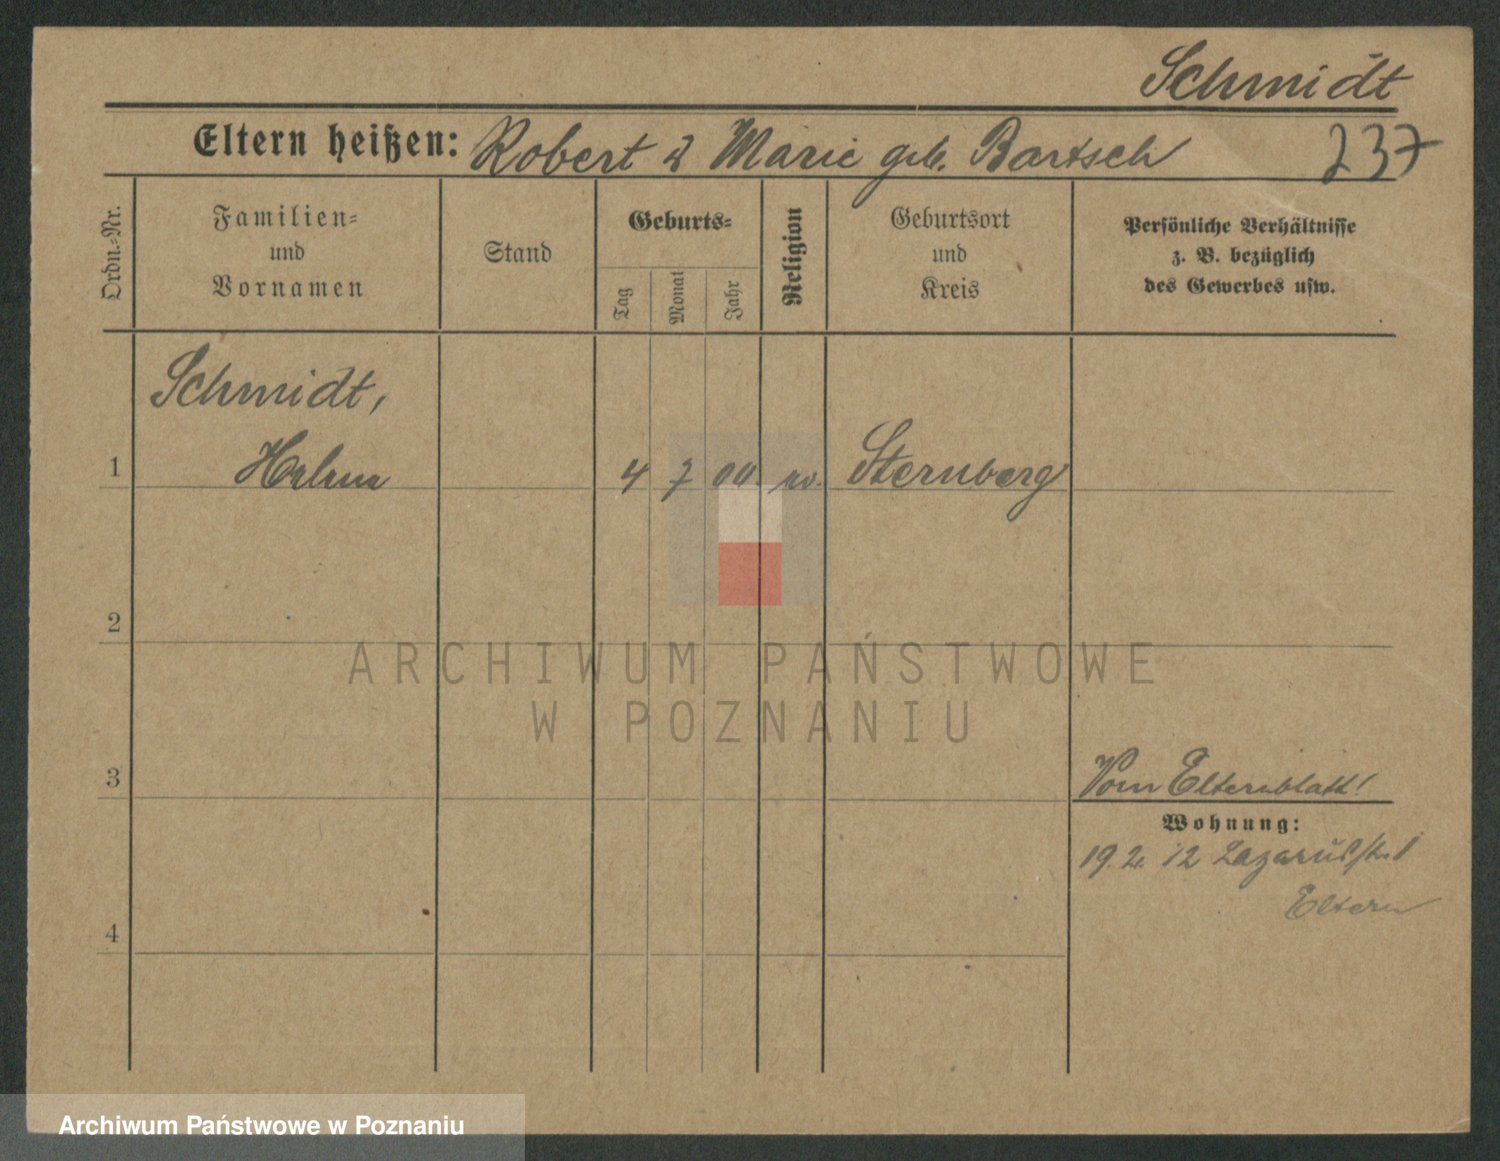 Schmidt
Eltern heißen: Robert & Marie geb. Bartsch
237
Ordn.-Nr.
Familien- und Vornamen
Stand
Geburts-
Tag
Monat
Jahr
Religion
Geburtsort und Kreis
Persönliche Verhältnisse
z. B. bezüglich
des Gewerbes usw.
Schmidt,
1 Helene 4 7 00. ev. Sternberg
2
ARCHIWUM PAŃSTWOWE
W POZNANIU
3
Vom Elternblatt!
Wohnung:
19. 2. 12 Lazarusstr. 1
Eltern
4
Archiwum Państwowe w Poznaniu